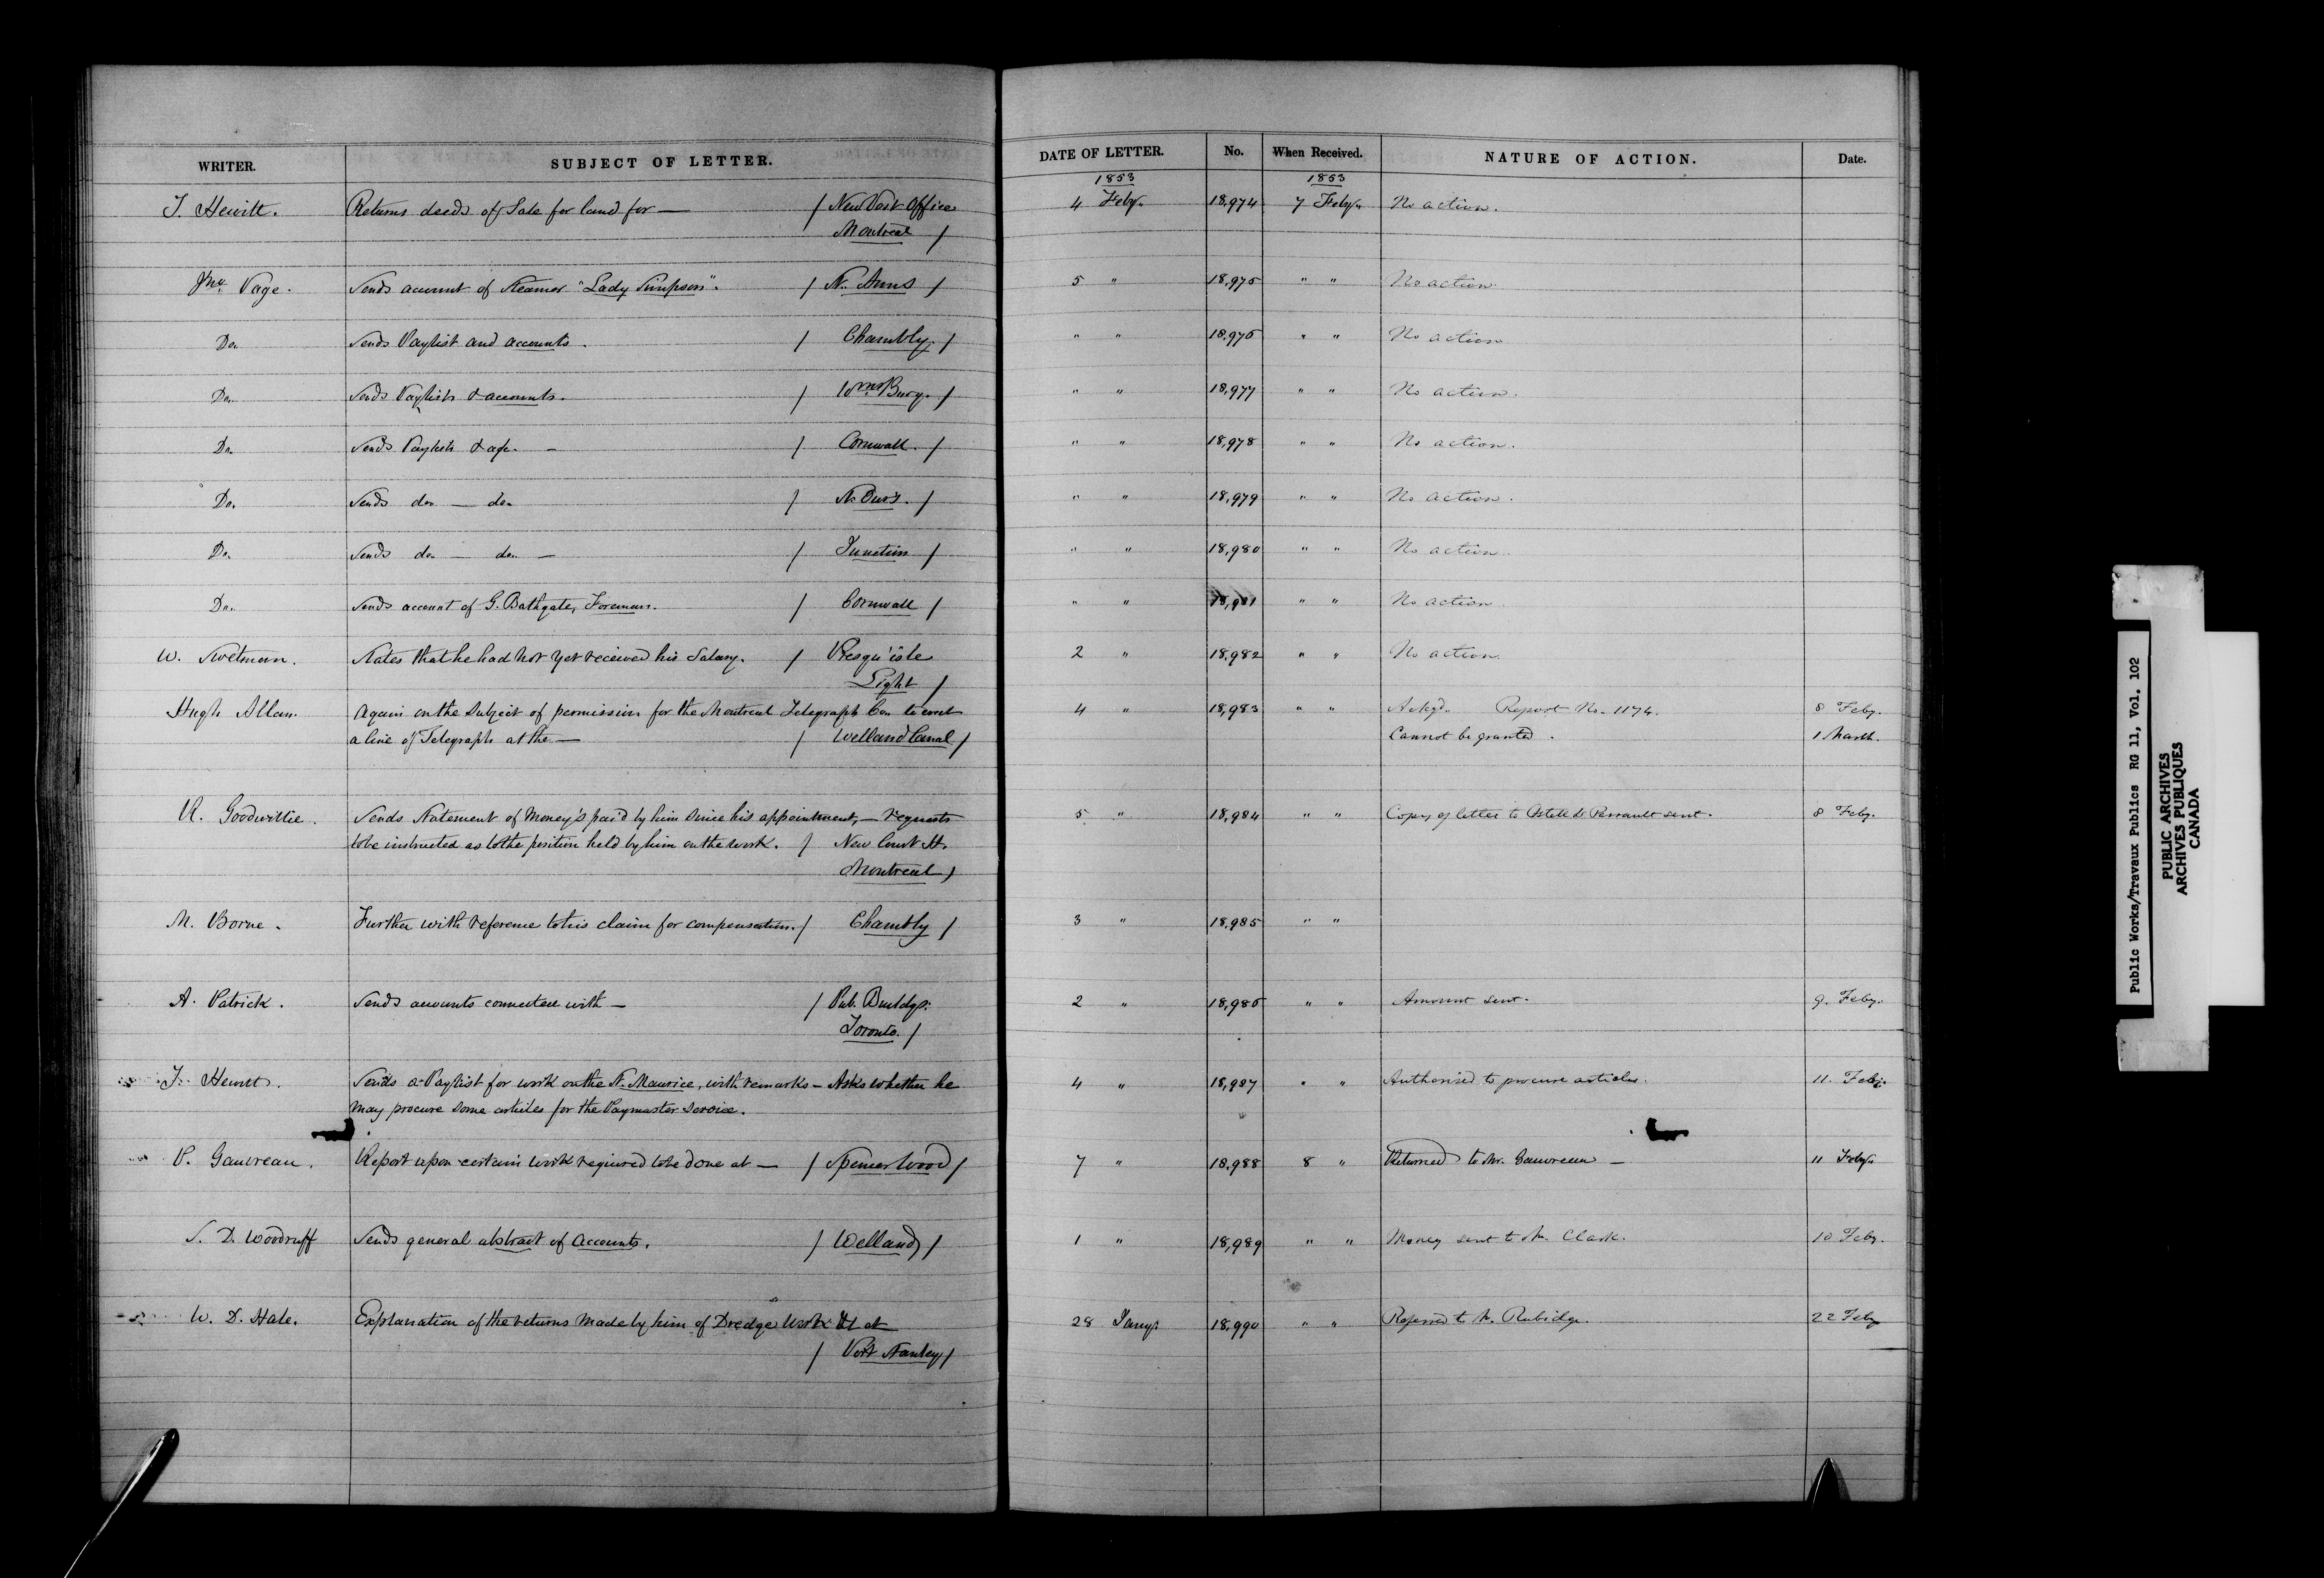 WRITER. SUBJECT OF LETTER. DATE OF LETTER. No. When Received. NATURE OF ACTION. Date.
1853 1853
J. Hewitt. Returns deeds of Sale for land for — / New Post Office 4 Feby. 18,974 7 Feby. No action.
Montreal /
Jno. Page. Sends account of Steamer "Lady Simpson". / St. Anns / 5 " 18,975 " " No action.
Do. Sends Paylist and accounts. / Chambly. / " " 18,976 " " No action
Do. Sends Paylists & accounts. / Wms.Burg. / " " 18,977 " " No action.
Do. Sends Paylists & — / Cornwall. / " " 18,978 " " No action.
Do. Sends do. — do. / " " 18,979 " " No action.
Do. Sends do. — do. — / Junction / " " 18,980 " " No action.
Do. Sends account of G. Bathgate, Foreman. / Cornwall / " " 18,981 " " No action.
W. Swetman. States that he had not yet received his Salary. / Presqu'isle 2 " 18,982 " " No action.
Light /
Hugh Allan. Again on the Subject of permission for the Montreal Telegraph Co. to erect 4 " 18,983 " " Ackgd. Report No. 1174. 8 Feby.
a line of Telegraph at the — / Welland Canal / Cannot be granted. 1 March.
R. Goodwillie. Sends Statement of Money's paid by him since his appointment, — requests 5 " 18,984 " " Copy of letter to Ostell & Perrault sent. 8 Feby.
to be instructed as to the position held by him on the work. / New Court H.
Montreal /
M. Borne. Further with reference to his claim for compensation. / Chambly / 3 " 18,985 " "
A. Patrick. Sends accounts connected with — / Pub. Buildgs. 2 " 18,986 " " Amount sent. 9. Feby.
Toronto. /
J. Hewitt. Sends a Paylist for work on the St. Maurice, with remarks — Asks whether he 4 " 18,987 " " Authorised to procure articles. 11. Feby.
may procure some articles for the Paymaster service.
P. Gauvreau. Report upon certain work required to be done at — / Spencer Wood / 7 " 18,988 8 " Returned to Mr. Gauvreau — 11 Feby.
S. D. Woodruff Sends general abstract of Accounts. / Welland / 1 " 18,989 " " Money sent to Mr. Clark. 10 Feby.
W. D. Hale. Explanation of the returns made by him of Dredge Work at 28 Jany. 18,990 " " Referred to Mr. Rubidge. 22 Feby
/ Port Stanley /
Public Works/Travaux Publics RG 11, Vol. 102
PUBLIC ARCHIVES
ARCHIVES PUBLIQUES
CANADA